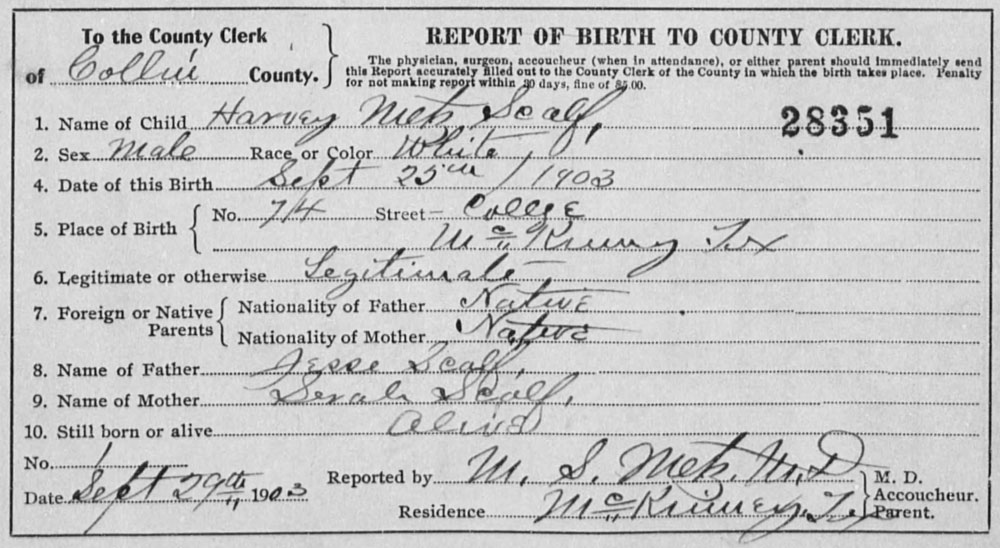 To the County Clerk
of Collin County.
REPORT OF BIRTH TO COUNTY CLERK.
The physician, surgeon, accoucheur (when in attendance), or either parent should immediately send
this Report accurately filled out to the County Clerk of the County in which the birth takes place. Penalty
for not making report within 30 days, fine of $5.00.
1. Name of Child Harvey Scalf,
28351
2. Sex Male Race or Color White,
4. Date of this Birth Sept 25th / 1903
5. Place of Birth No. 714 Street College
McKinney Tex
6. Legitimate or otherwise Legitimate
7. Foreign or Native Parents Nationality of Father Native
Nationality of Mother Native
8. Name of Father Jesse Scalf,
9. Name of Mother Scalf,
10. Still born or alive Alive
No.
Date Sept 29th 1903
Reported by M. S. M. D.
Residence McKinney, Tex
M. D.
Accoucheur.
Parent.